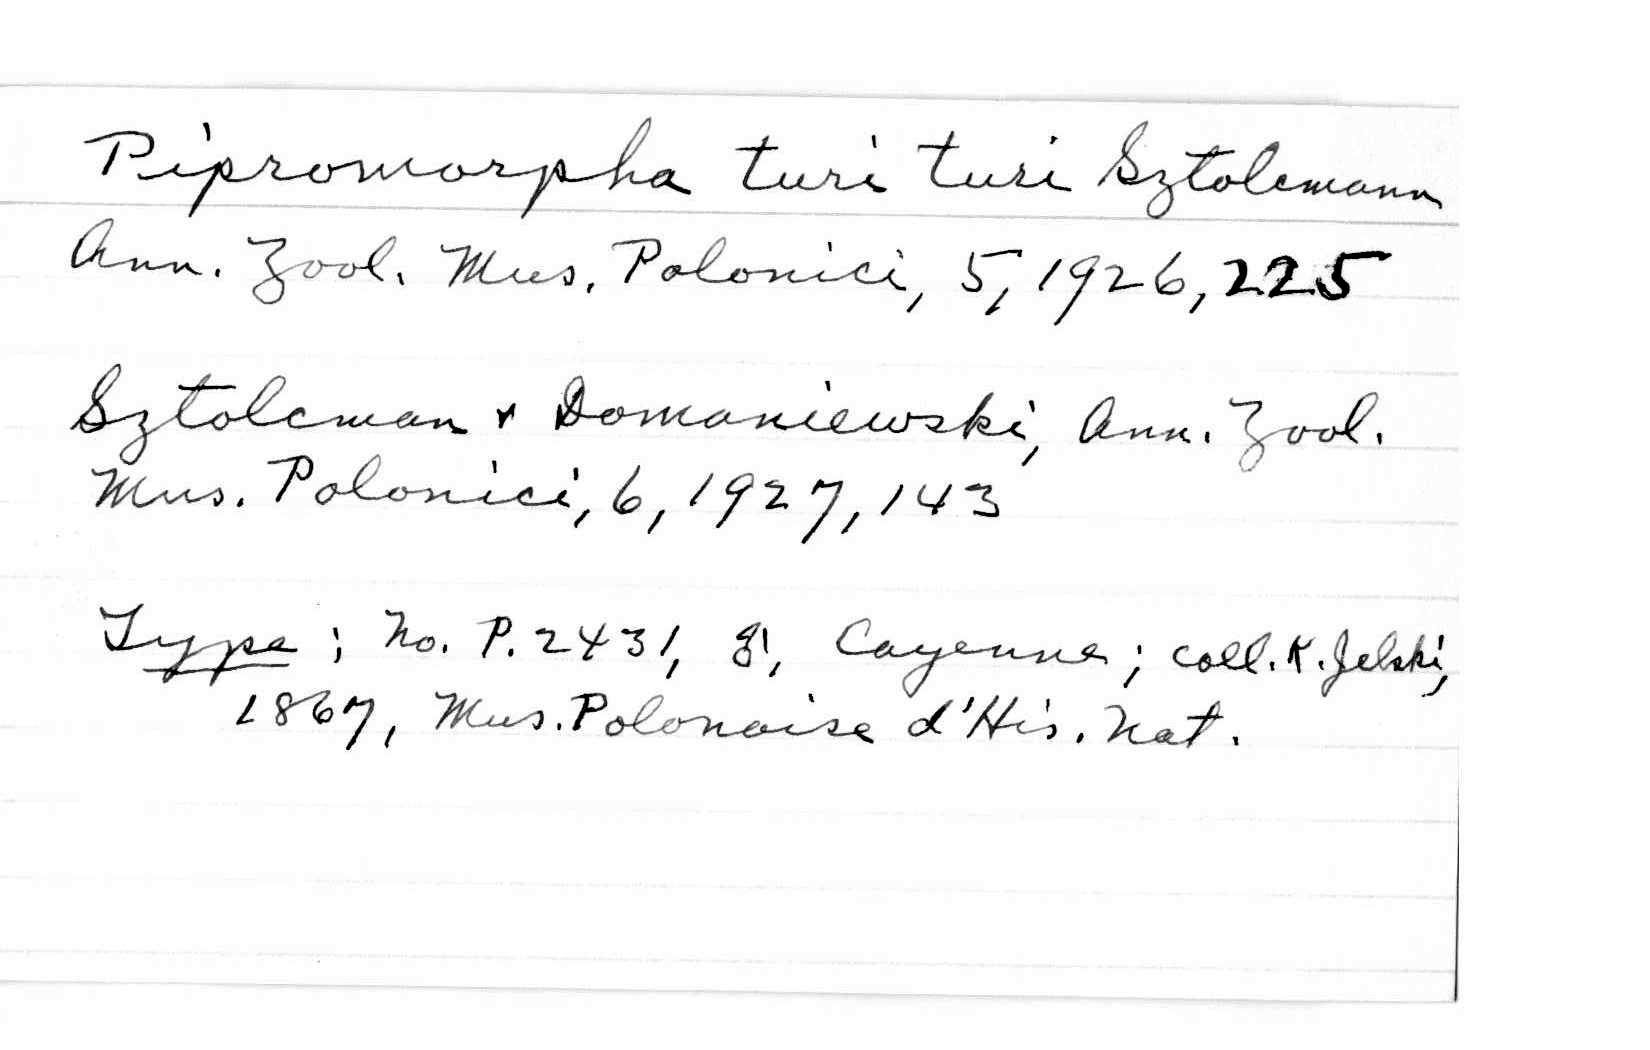 Pipromorpha turi turi Sztolcmann
Ann. Zool. Mus. Polonici, 5, 1926, 225
Sztolcman & Domaniewski, Ann. Zool.
Mus. Polonici, 6, 1927, 143
Type; No. P. 2431, Cayenne; coll. K. Jelski,
1867, Mus. Polonaise d'His. Nat.